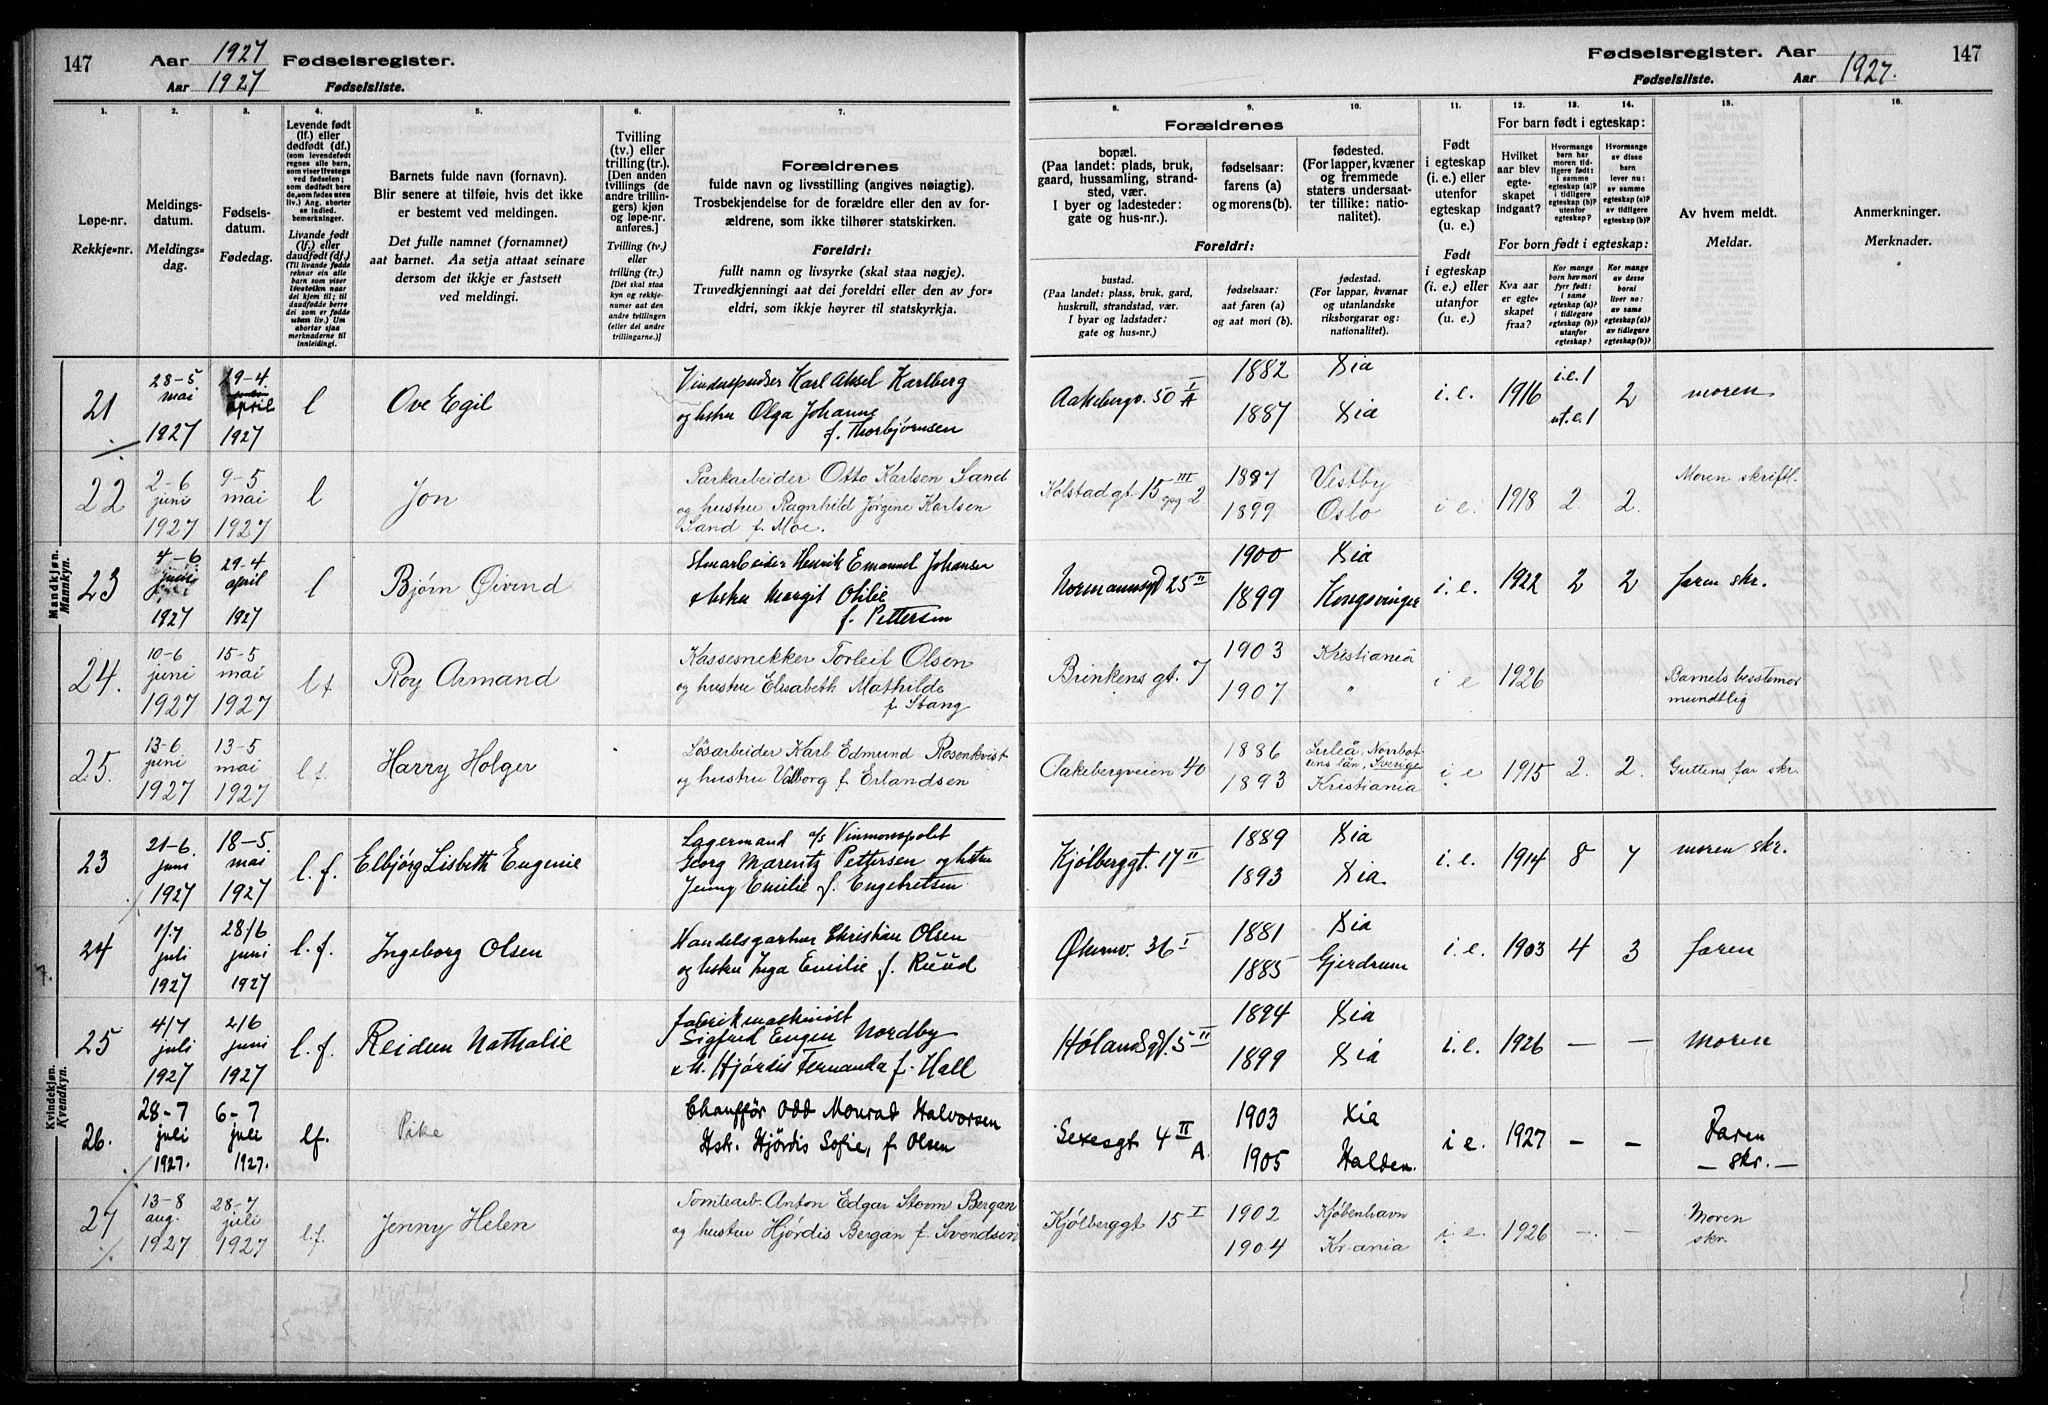 147 Aar 1927 Fødselsregister.
Aar 1927 Fødselsliste.
Fødselsregister. Aar 147
Fødselsliste. Aar 1927.
1. 2. 3. 4. 5. 6. 7.
8. 9. 10. 11. 12. 13. 14. 15. 16.
Løpe-nr.
Rekkje-nr.
Meldings-
datum.
Meldings-
dag.
Fødsels-
datum.
Fødedag.
Levende født
(lf.) eller
dødfødt (df.)
(som levendefødt
regnes alle barn,
som viser livstegn
ved fødselen;
som dødfødt bare
de, som fødes uten
liv.) Ang. aborter
se indled.
bemerkninger.
Livande født
(lf.) eller
daudfødt (df.)
Barnets fulde navn (fornavn).
Blir senere at tilføie, hvis det ikke
er bestemt ved meldingen.
Det fulle namnet (fornamnet)
aat barnet. Aa setja attaat seinare
dersom det ikkje er fastsett
ved meldingi.
Tvilling
(tv.) eller
trilling (tr.).
[Den anden
tvillings (de
andre trillin-
gers) kjøn
og løpe-nr.
anføres.]
Tvilling (tv.)
eller
trilling (tr.)
[Det skal staa
kyn og rekkje-
numer aat den
andre tvillingen
(eller dei andre
trillingarne.)]
Forældrenes
fulde navn og livsstilling (angives nøiagtig).
Trosbekjendelse for de forældre eller den av for-
ældrene, som ikke tilhører statskirken.
Foreldri:
fullt namn og livsyrke (skal staa nøgje).
Truvedkjenningi aat dei foreldri eller den av for-
eldri, som ikkje høyrer til statskyrkja.
Forældrenes
bopæl.
(Paa landet: plads, bruk,
gaard, hussamling, strand-
sted, vær.
I byer og ladesteder:
gate og hus-nr.).
fødselsaar:
farens (a)
og morens (b).
fødested.
(For lapper, kvæner
og fremmede
staters undersaat-
ter tillike: natio-
nalitet).
Foreldri:
bustad.
(Paa landet: plass, bruk, gard,
huskrull, strandstad, vær.
I byar og ladstader:
gate og hus-nr.).
fødselsaar:
aat faren (a)
og aat mori (b).
fødestad.
(For lappar, kvænar
og utanlandske
riksborgarar og:
nationalitet).
Født
i egteskap
(i. e.) eller
utenfor
egteskap
(u. e.)
Født
i egteskap
(i. e.) eller
utanfor
egteskap
(u. e.).
For barn født i egteskap:
Hvilket
aar blev
egte-
skapet
indgaat?
Hvormange
barn har
moren tid-
ligere født:
i samme
egteskap (a)?
i tidligere
egteskap (b)?
utenfor
egteskap?
Hvormange
av disse
barn
lever nu:
av samme
egteskap (a)?
av tidligere
egteskap (b)?
For born født i egteskap:
Kva aar
er egte-
skapet
fraa?
Kor mange
born hev mori
fyrr født:
i same
egteskap (a)?
i tidlegare
egteskap (b)?
utanfor
egteskap?
Kor mange
av desse
borni
liver no:
av same
egteskap (a)?
av tidlegare
egteskap (b)?
Av hvem meldt.
Meldar.
Anmerkninger.
Merknader.
Mandkjøn.
Mannkyn.
21 28-5 mai 1927 29-4 april 1927 l Ove Egil Karl Aksel Karlberg og hstru Olga Johanne f. Thorbjørnsen Aakebergv. 50 I A 1882 1887 Xia Xia i. e. 1916 i.e. 1 ut.e. 1 2 moren
22 2-6 juni 1927 9-5 mai 1927 l Jon Parkarbeider Otto Karlsen Sand og hustru Ragnhild Jørgine Karlsen Sand f. Moe. Kolstadgt 15 III opg 2 1897 1899 Vestby Oslo i e. 1918 2. 2. Moren skriftl.
23 4-6 juni 1927 29-4 april 1927 l Bjørn Øivind Henrik Emanuel Johansen & hstru Margit Otilie f. Pettersen Normannsgt 25 II 1900 1899 Xia Kongsvinger i. e. 1922 2 2 faren skr.
24. 10-6 juni 1927 15-5 mai 1927 l f. Roy Armand Kassesnekker Torleif Olsen og hustru Elisabeth Mathilde f. Stang Brinkens gt. 7 1903 1907 Kristiania " i e 1926 Barnets bestemor mundtlig
25. 13-6 juni 1927 13-5 mai 1927 l f. Harry Holger Løsarbeider Karl Edmund Rosenkvist og hustru Valborg f. Erlandsen Aakebergveien 40 1886 1893 Luleå, Norrbottens län, Sverige Kristiania i e 1915 2. 2. Guttens far skr.
Kvindekjøn.
Kvendkyn.
23 21-6. juni 1927 18-5. mai 1927 l. f. Elbjørg Lisbeth Eugenie Lagermand a/s Vinmonopolet Georg Marentz Pettersen og hstru Jenny Emilie f. Engebretsen Kjølberggt. 17 II 1889 1893 Xia Xia. i. e. 1914 8 7 moren skr.
24 1/7 juli 1927 28/6 juni 1927 l. f. Ingeborg Olsen Handelsgartner Christian Olsen og hstru Inga Emilie f. Ruud Økernv. 36 I 1881 1885 Xia Gjerdrum i. e. 1903 4 3 faren
25 4/7 juli 1927 2/6 juni 1927 l. f. Reidun Nathalie fabrikmaskinist Sigfred Eugen Nordby & h. Hjørdis Fernanda f. Hall Hølandsgt. 5 II 1894 1899 Xia Xia i. e. 1926 — — moren
26. 28-7 juli 1927. 6-7 juli 1927. lf. Pike Chauffør Odd Monrad Halvorsen Hstr. Hjørdis Sofie, f. Olsen Sexesgt 4 II A. 1903 1905 Xia Halden. i e. 1927 — — Faren — skr. —
27 13-8 aug. 1927 28-7 juli 1927 l.f. Jenny Helen Tomtearb. Anton Edgar Storm Bergan og hustru Hjørdis Bergan f. Svendsen Kjølberggt 15 I 1902 1904 Kjøbenhavn Kr.ania i e. 1926 — — Moren skr.